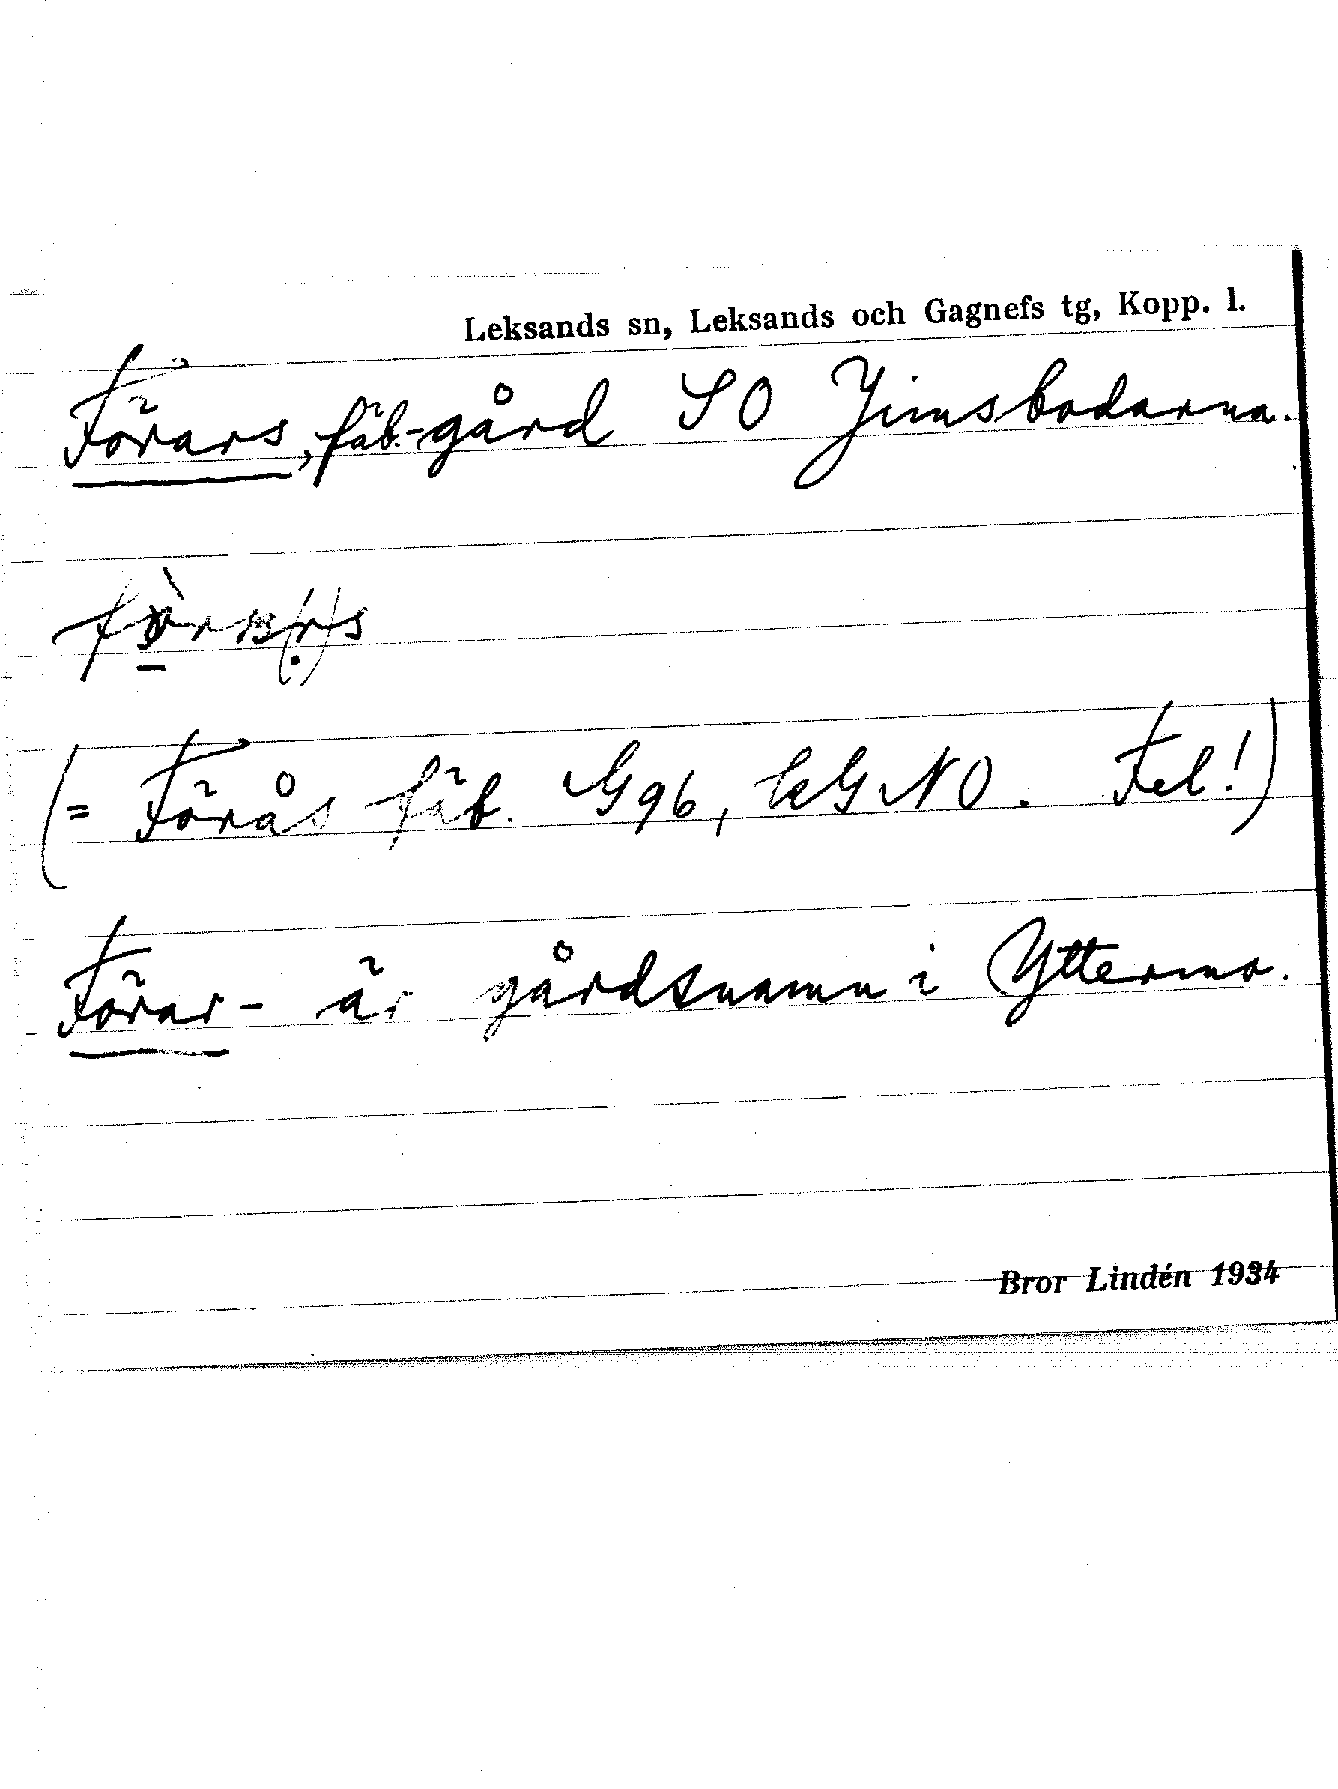 Leksands sn, Leksands och Gagnefs tg, Kopp. l.
Förars, fäb.-gård SO Jimsbodarna.
(= Förås fäb. G96, kG NO. Fel!)
Förar- är gårdsnamn i Yttermo.
Bror Lindén 1934